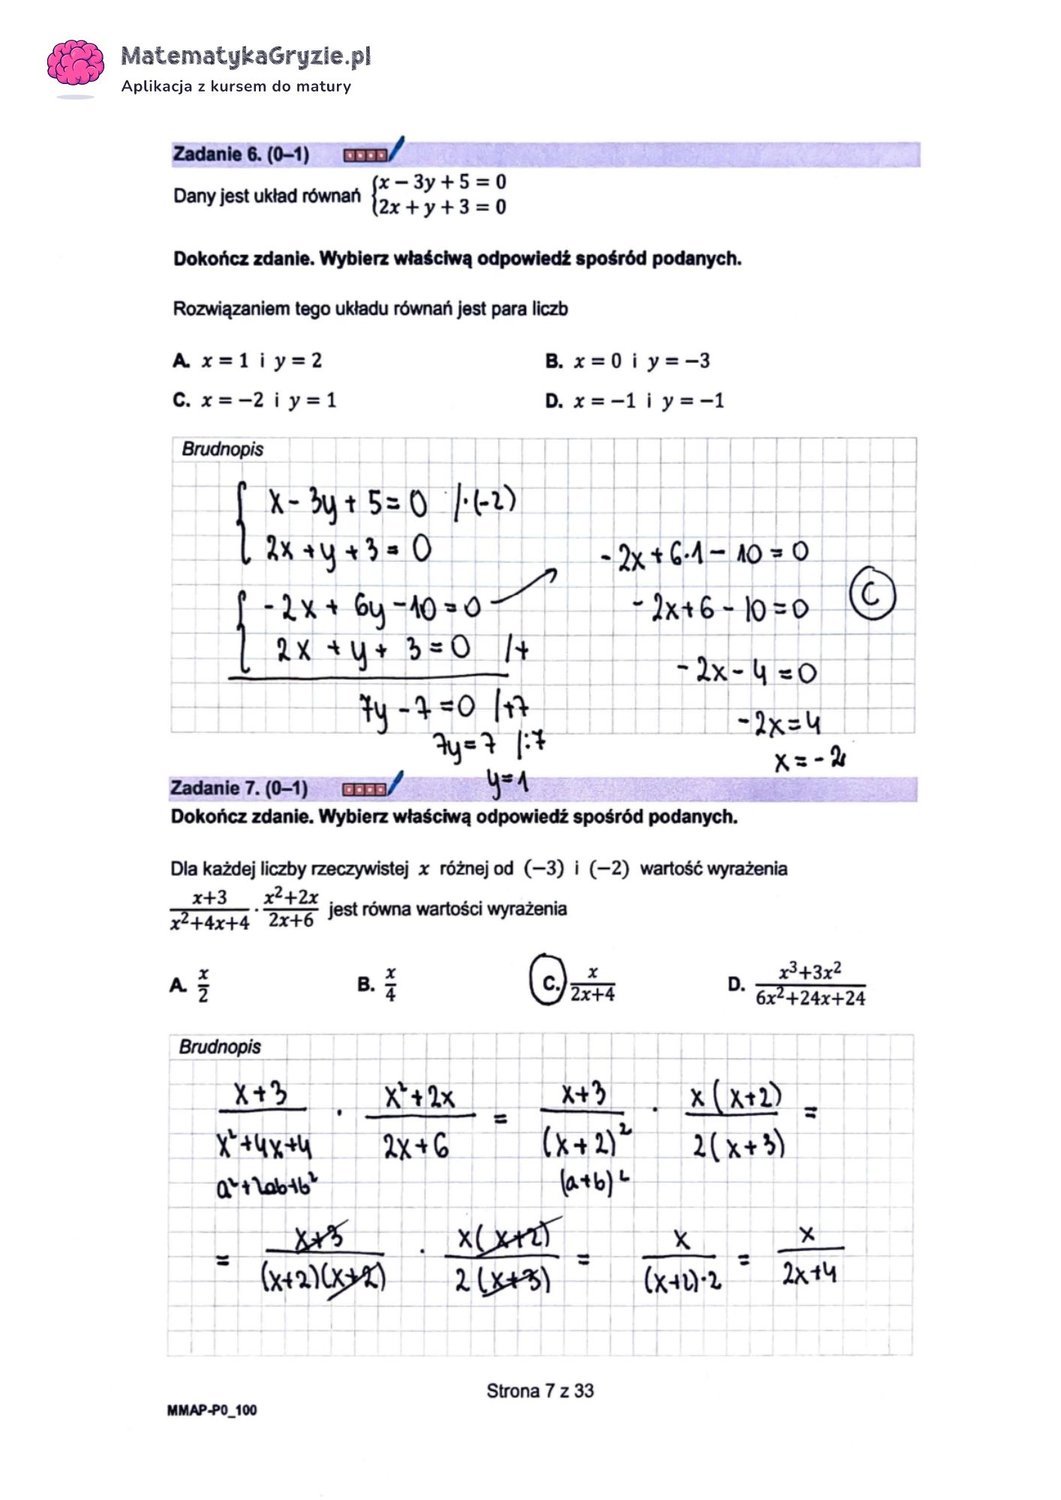 MatematykaGryzie.pl
Aplikacja z kursem do matury
Zadanie 6. (0–1)
Dany jest układ równań {x − 3y + 5 = 0
{2x + y + 3 = 0
Dokończ zdanie. Wybierz właściwą odpowiedź spośród podanych.
Rozwiązaniem tego układu równań jest para liczb
A. x = 1 i y = 2
B. x = 0 i y = −3
C. x = −2 i y = 1
D. x = −1 i y = −1
Brudnopis
{ x - 3y + 5 = 0 /·(-2)
2x + y + 3 = 0
{ -2x + 6y - 10 = 0
2x + y + 3 = 0 /+
7y - 7 = 0 |+7
7y = 7 |:7
y = 1
-2x + 6·1 - 10 = 0
-2x + 6 - 10 = 0
-2x - 4 = 0
-2x = 4
x = -2
C
Zadanie 7. (0–1)
Dokończ zdanie. Wybierz właściwą odpowiedź spośród podanych.
Dla każdej liczby rzeczywistej x różnej od (−3) i (−2) wartość wyrażenia
x+3/x²+4x+4 · x²+2x/2x+6 jest równa wartości wyrażenia
A. x/2
B. x/4
C. x/2x+4
D. x³+3x²/6x²+24x+24
Brudnopis
x+3/x²+4x+4 · x²+2x/2x+6 = x+3/(x+2)² · x(x+2)/2(x+3) =
a²+2ab+b² (a+b)²
= x+3/(x+2)(x+2) · x(x+2)/2(x+3) = x/(x+2)·2 = x/2x+4
Strona 7 z 33
MMAP-P0_100